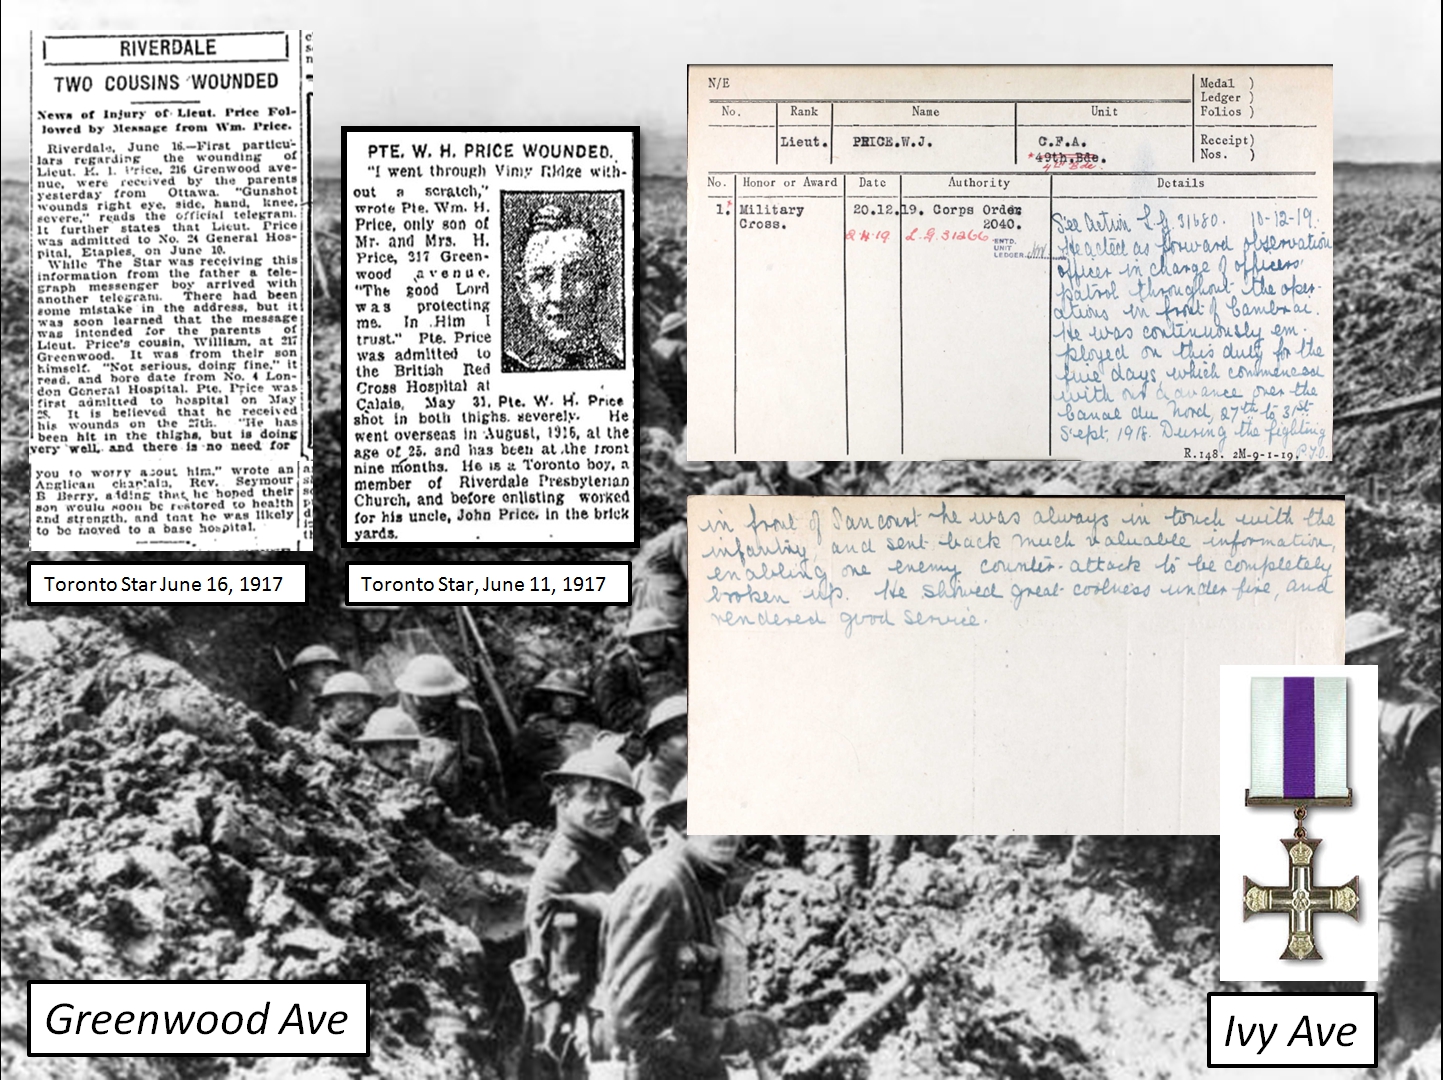 RIVERDALE
TWO COUSINS WOUNDED
News of Injury of Lieut. Price Fol-
lowed by Message from Wm. Price.
Riverdale, June 16.—First particu-
lars regarding the wounding of
Lieut. 216 Grenwood ave-
nue, were received by the parents
yesterday from Ottawa. "Gunshot
wounds right eye, side, hand, knee,
severe," reads the official telegram.
It further states that Lieut. Price
was admitted to No. 24 General Hos-
pital, Etaples, on June 10.
While The Star was receiving this
information from the father a tele-
graph messenger boy arrived with
another telegram. There had been
some mistake in the address, but it
was soon learned that the message
was intended for the parents of
Lieut. Price's cousin, William, at 217
Greenwood. It was from their son
himself. "Not serious, doing fine," it
read, and bore date from No. 4 Lon-
don General Hospital. Pte. Price was
first admitted to hospital on May
28. It is believed that he received
his wounds on the 27th. "He has
been hit in the thighs, but is doing
very well, and there is no need for
you to worry about him," wrote an
Anglican chaplain, Rev. Seymour
B Berry, adding that he hoped their
son would soon be restored to health
and strength, and that he was likely
to be moved to a base hospital.
Toronto Star June 16, 1917
PTE. W. H. PRICE WOUNDED.
"I went through Vimy Ridge with-
out a scratch,"
wrote Pte. Wm. H.
Price, only son of
Mr. and Mrs. H.
Price, 217 Green-
wood avenue.
"The good Lord
was protecting
me. In Him I
trust." Pte. Price
was admitted to
the British Red
Cross Hospital at
Calais, May 31,
Pte. W. H. Price
shot in both thighs, severely. He
went overseas in August, 1916, at the
age of 25, and has been at the front
nine months. He is a Toronto boy, a
member of Riverdale Presbyterian
Church, and before enlisting worked
for his uncle, John Price, in the brick
yards.
Toronto Star, June 11, 1917
N/E
Medal )
Ledger )
Folios )
No. Rank Name Unit
Lieut. PRICE.W.J. C.F.A.
Receipt)
Nos. )
* 49th.Bde.
4th Bde.
No. Honor or Award Date Authority Details
1. Military Cross. 20.12.19. Corps Order 2040.
2.4.19 L.G. 31266
ENTD.
UNIT
LEDGER
See Actin L.G. 31680. 10-12-19.
He acted as forward observation
officer in charge of officers'
patrol throughout the oper-
ations in front of Cambrai.
He was continuously em-
ployed on this duty for the
five days, which commenced
with our advance over the
Canal du Nord, 27th to 31st
Sept. 1918. During the fighting
P.T.O.
R.148. 2M-9-1-19.
in front of Sancourt he was always in touch with the
infantry, and sent back much valuable information,
enabling one enemy counter-attack to be completely
broken up. He showed great coolness under fire, and
rendered good service.
Greenwood Ave
Ivy Ave